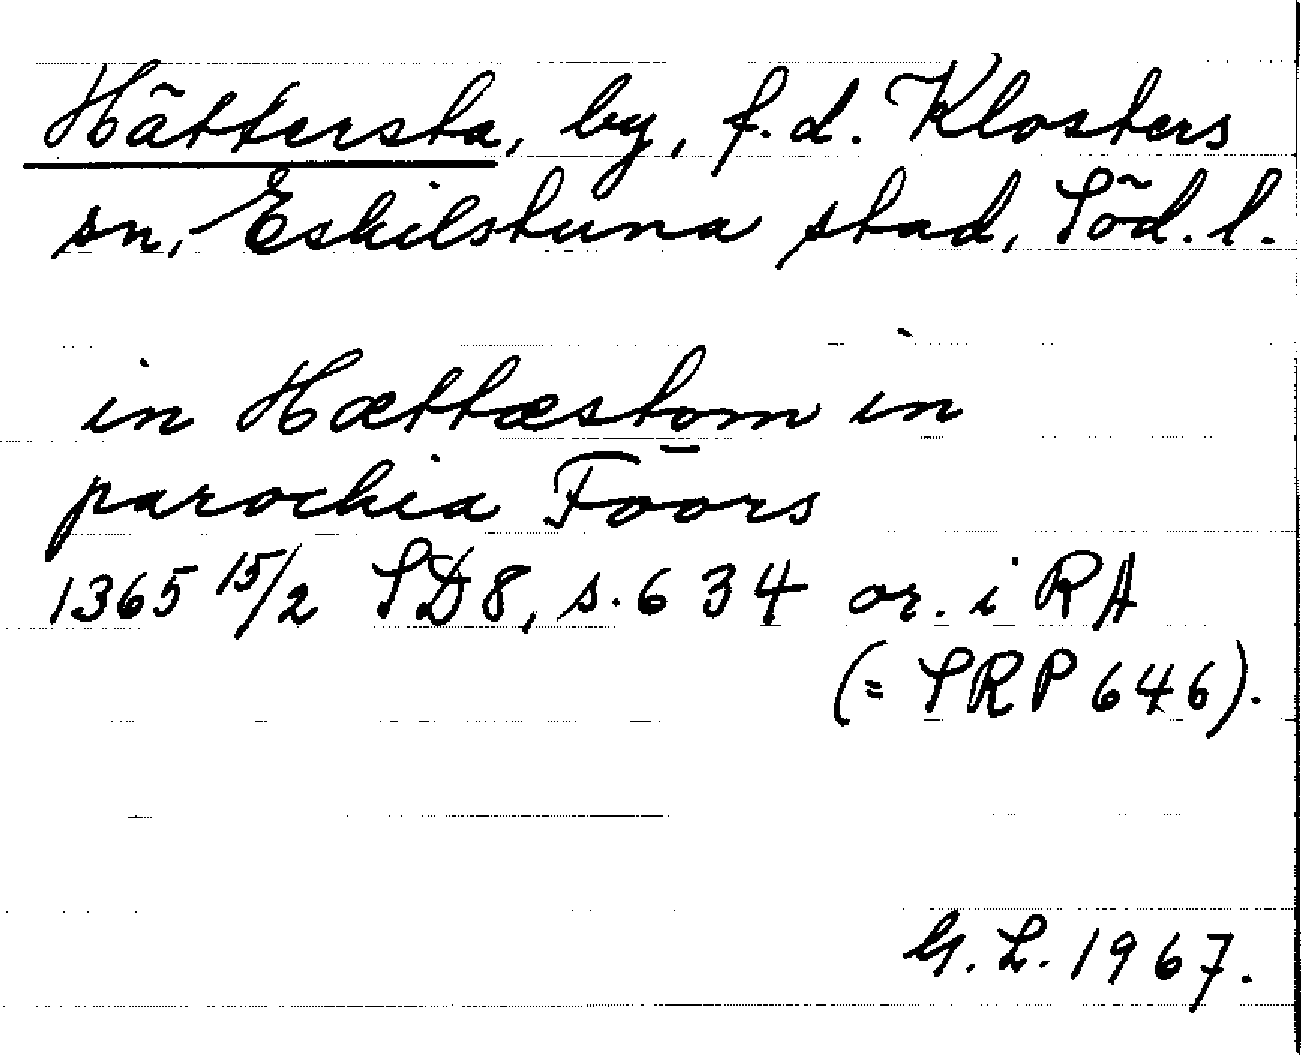 Hättersta, by, f.d. Klosters
sn, Eskilstuna stad, Söd. l.
in Hættæstom in
parochia Foors
1365 15/2 SD8, s. 634 or. i RA
(= SRP 646).
G. L. 1967.